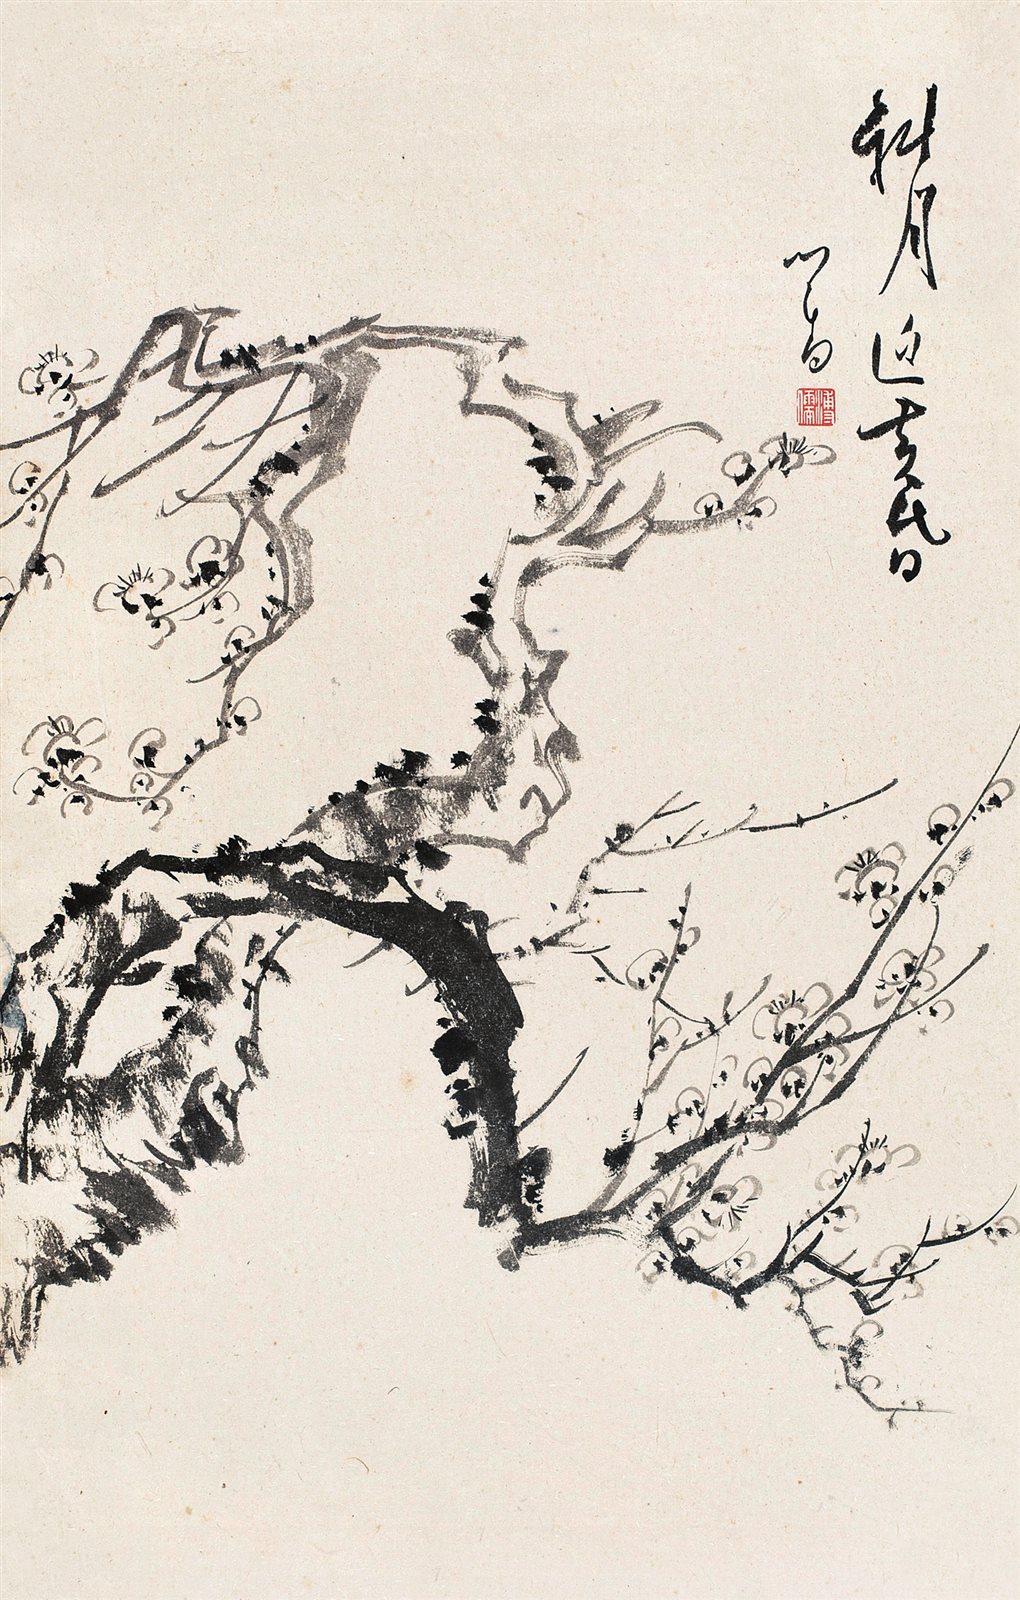 斜月近黄昏
心畬
溥儒